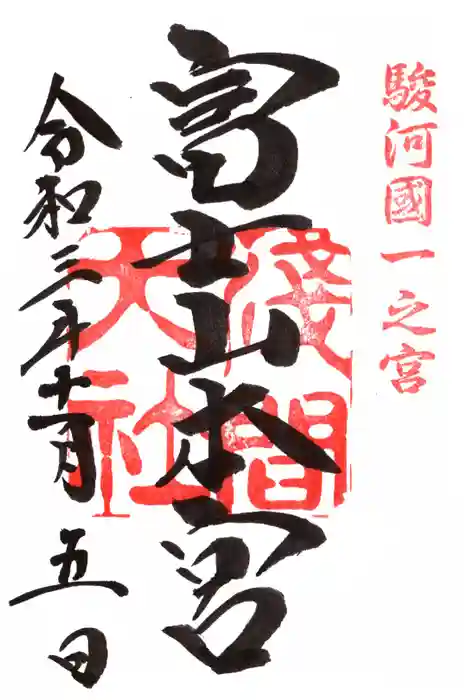 駿河國一之宮
富士山本宮
淺間
大社
令和三年十一月五日